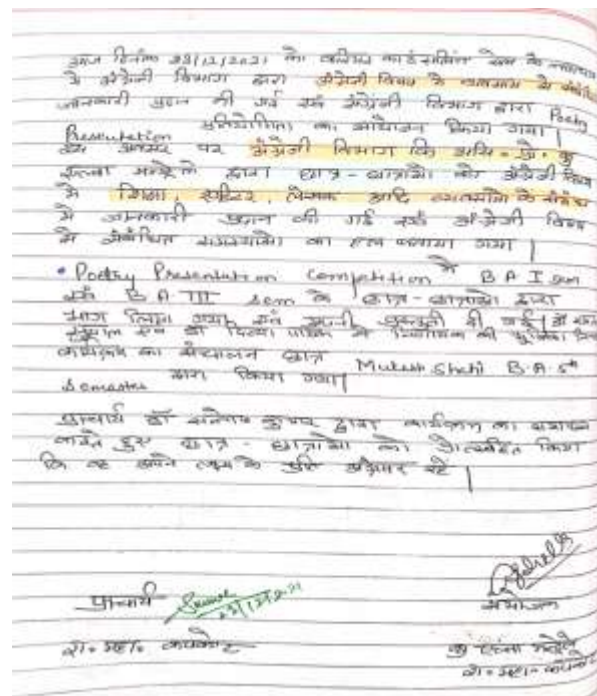 आज दिनांक 23/12/2021 को करियर काउंसलिंग सेल के तत्वाधान
में अंग्रेजी विभाग द्वारा अंग्रेजी विषय के व्यवसाय से संबंधित
जानकारी प्रदान की गई एवं अंग्रेजी विभाग द्वारा Poetry
Presentation प्रतियोगिता का आयोजन किया गया |
इस अवसर पर अंग्रेजी विभाग कि असि. प्रो. कु
द्वारा छात्र-छात्राओं को अंग्रेजी विषय
में शिक्षा, लेखक आदि व्यवसायों के संबंध
में जानकारी प्रदान की गई एवं अंग्रेजी विषय
से संबंधित समस्याओं का हल बताया गया |
• Poetry Presentation competition में B A I sem
एवं B.A. III sem के छात्र-छात्राओं द्वारा
भाग लिया गया एवं अपनी प्रस्तुती दी गई |
एवं डॉ की भूमिका
कार्यक्रम का संचालन छात्र Mukesh B.A
Semester द्वारा किया गया |
प्राचार्य डॉ कुमार द्वारा कार्यक्रम का समापन
करते हुए छात्र-छात्राओं को प्रोत्साहित किया
कि वह अपने लक्ष्य के प्रति अग्रसर रहे |
प्राचार्य 23/12/2021
संयोजक
रा. महा. कपकोट
कु
रा. महा. कपकोट